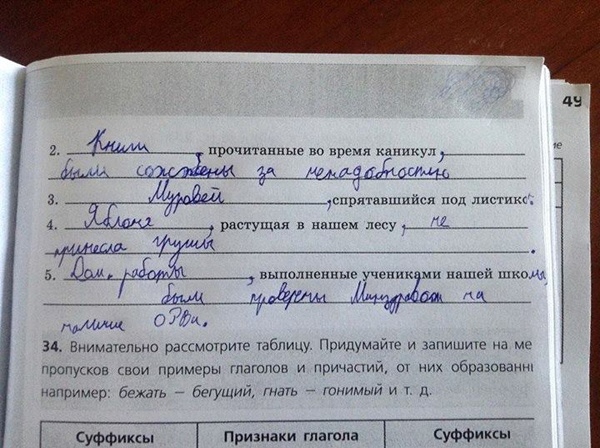 49
2. Книги, прочитанные во время каникул,
были сожжены за ненадобностью
3. Муравей, спрятавшийся под листико
4. Яблоня, растущая в нашем лесу, не
принесла грушы.
5. Дом. работы, выполненные учениками нашей школы,
были проверены Минздравом на
наличие ОРВи.
34. Внимательно рассмотрите таблицу. Придумайте и запишите на ме
пропусков свои примеры глаголов и причастий, от них образованн
например: бежать – бегущий, гнать – гонимый и т. д.
Суффиксы Признаки глагола Суффиксы